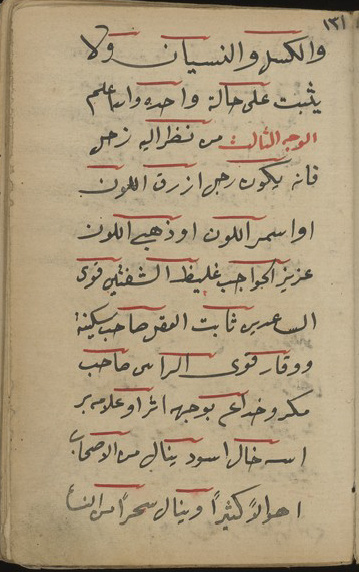 ١٣١
والكسل والنسيان ولا
يثبت على حالة واحده والله اعلم
الوجه الثالث من نظر اليه زحل
فانه يكون رجل ازرق اللون
او اسمر اللون او ذهبي اللون
غزير الحواجب غليظ الشفتين قوى
الساعدين ثابت العقل صاحب سكينة
ووقار قوى الراس صاحب
مكر وخداع بوجهه اثر او علامه
خال اسود ينال من الاصحاب
اهوالاً كثيراً وينال سحراً من النسا